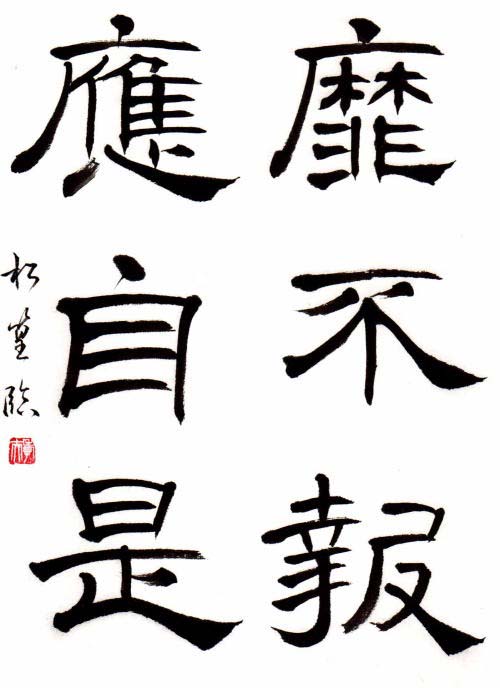 靡不報
應自是
松臨